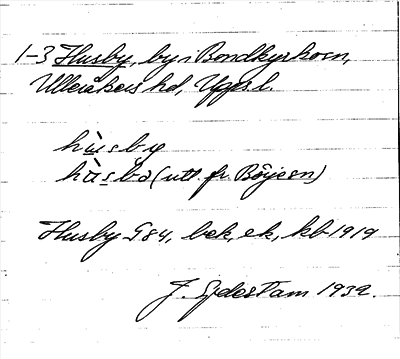 1-3 Husby, by i Bondkyrkosn,
Ulleråkers hd, Upps l.
hùsby
hàsbə (utt. fr. Börjesn)
Husby G 84, bek, ek, kb 1919
J. Sjdestam 1932.